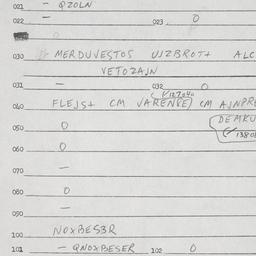 021 — QZOLN
022 — 023. O
O
030 MERDUVESTOS UJZBROT+ ALC
VETOZAJN
031 — 032 O
✓127040
040 FLEJS+ CM VARENVE) CM AJNPRE
DEMKU
050 O ✓ 1380
060 O
070 —
080 O
090 —
100 NOXBESBR
101 — QNOXBESER 102 O